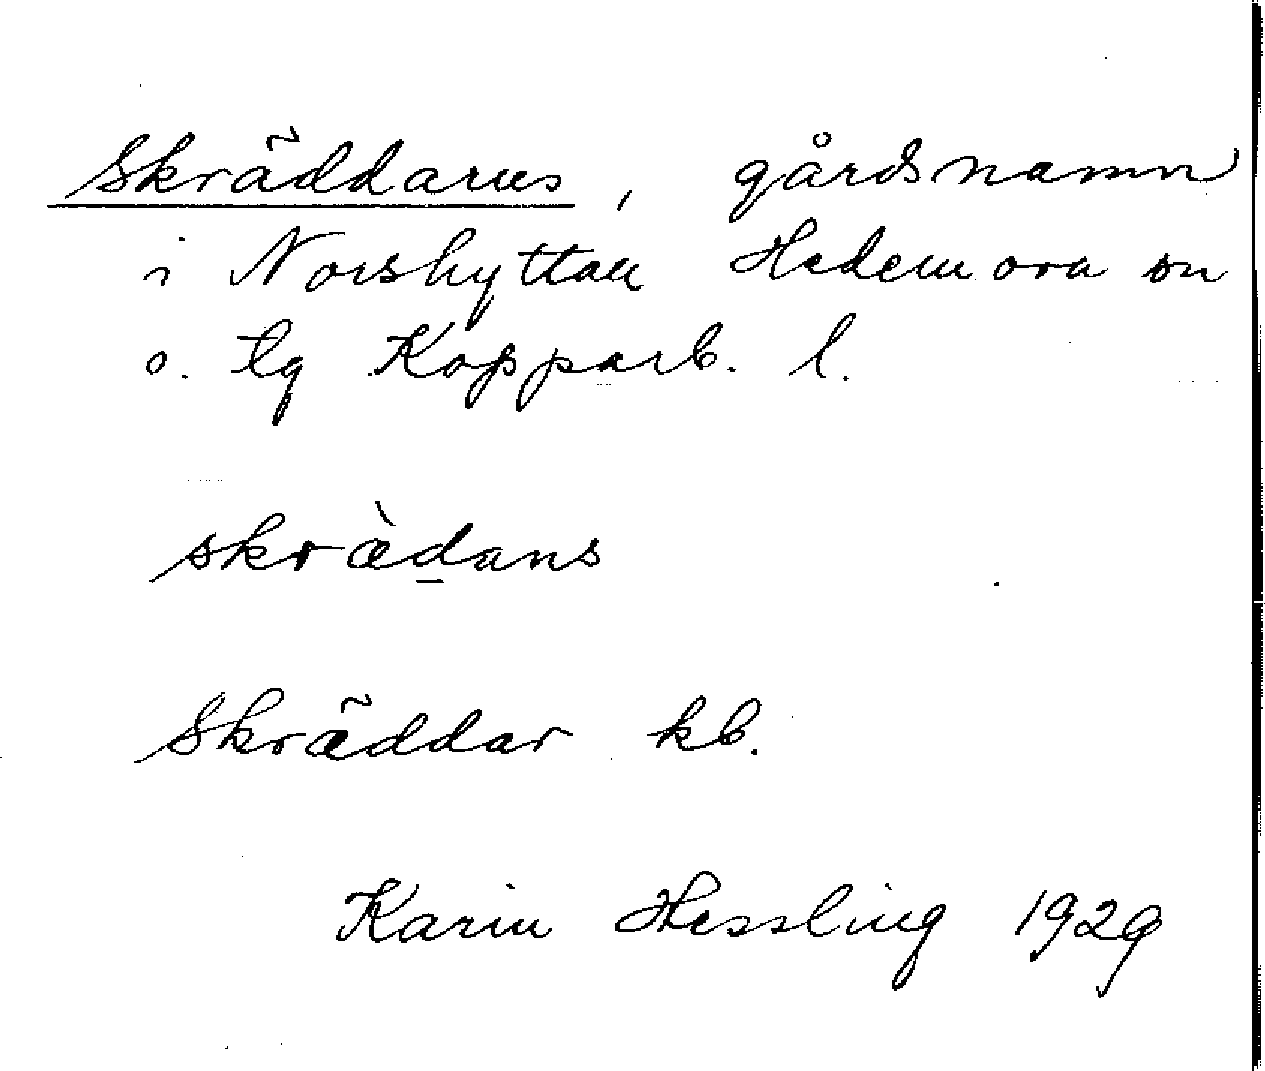 Skräddarns, gårdsnamn
i Norshyttan Hedemora sn
o. tg Kopparb. l.
skræ̀d̲ans
Skräddar kb.
Karin Hessling 1929